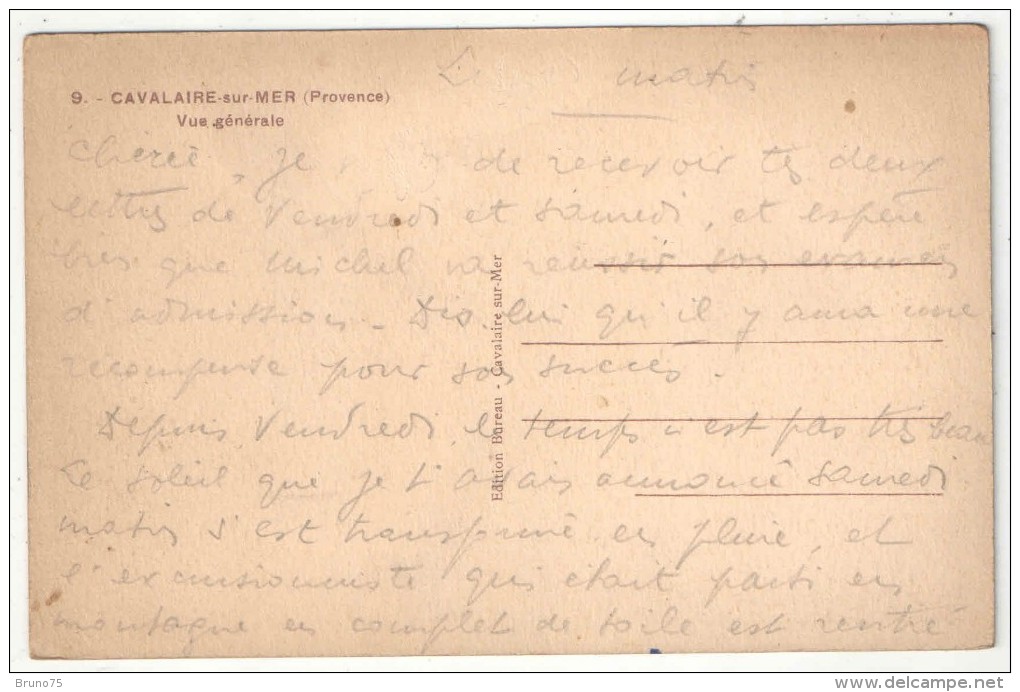 L matin
9. - CAVALAIRE-sur-MER (Provence)
Vue générale
Chérie, je de recevoir tes deux
lettres de Vendredi et samedi, et espère
bien que Michel va réussir son examen
d'admission - Dis-lui qu'il y aura une
récompense pour son succès.
Depuis Vendredi, le temps n'est pas très beau
Le soleil que je t'avais annoncé samedi
matin s'est transformé en pluie, et
l'excursionniste qui était parti en
montagne en complet de toile est rentré
Edition Bureau - Cavalaire sur-Mer
Bruno75
delcampe.net